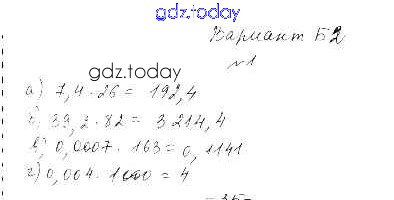 gdz.today
Вариант Б2
№1
gdz.today
а) 7,4 · 26 = 192,4
б) 39,2 · 82 = 3 214,4
в) 0,0007 · 163 = 0,1141
г) 0,004 · 1000 = 4